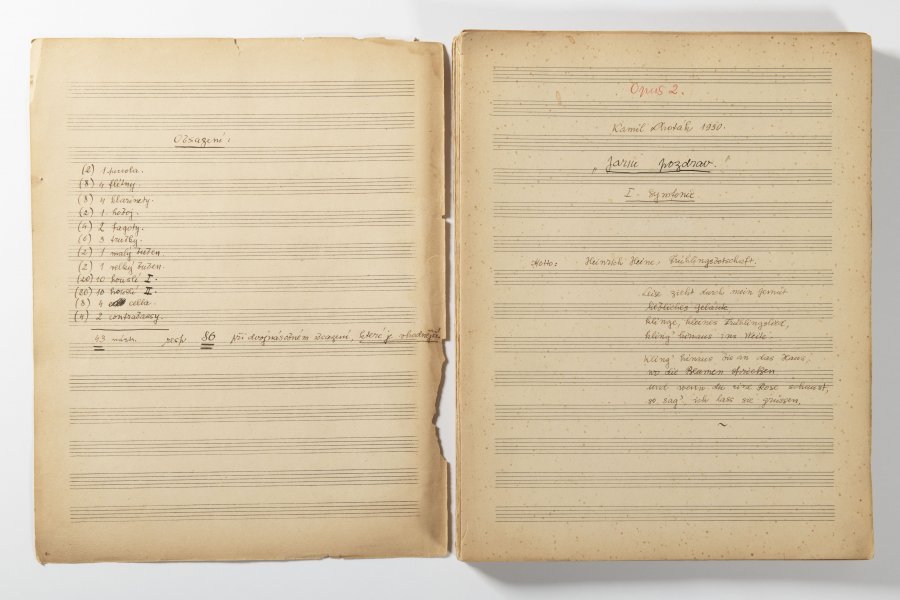 Obsazení:
(2) 1 piccola.
(8) 4 flétny.
(8) 4 klarinety.
(2) 1 hoboj.
(4) 2 fagoty.
(6) 3 trubky.
(2) 1 malý buben.
(2) 1 velký buben.
(20) 10 housle I.
(20) 10 housle II.
(8) 4 cella.
(4) 2 contrabassy.
43 nástr. resp. 86 při dvojnásobném obsazení, které je vhodnější.
Opus 2.
Kamil 1950.
"Jarní pozdrav."
I. Symfonie
Motto: Heinrich Heine, Frühlingsbotschaft.
Leise zieht durch mein Gemüt
liebliches Geläute
klinge, kleines Frühlingslied,
kling' hinaus ins Weite.
Kling' hinaus bis an das Haus,
wo die Blumen sprießen
und wenn du eine Rose schaust,
so sag', ich lass sie grüssen.